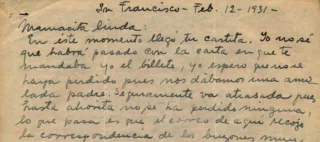 Sn Francisco - Feb. 12 - 1931 -
Mamacita linda:
En este momento llegó tu cartita. Yo no sé
que habrá pasado con la carta en que te
mandaba yo el billete, yo espero que no se
haya perdido pues nos dábamos una amo
lada padre. Seguramente va atrasada pues
hasta ahorita no se ha perdido ninguna,
lo que pasa es que el correo de aquí recoje
la correspondencia de los buzones muy